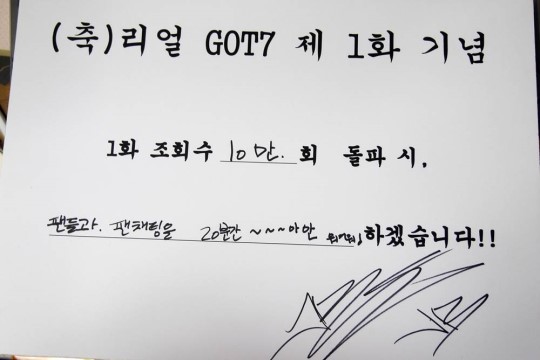 (축)리얼 GOT7 제 1화 기념
1화 조회수 10만. 회 돌파 시,
팬들과. 팬채팅을 20분간 ~~~마안 하겠습니다!!